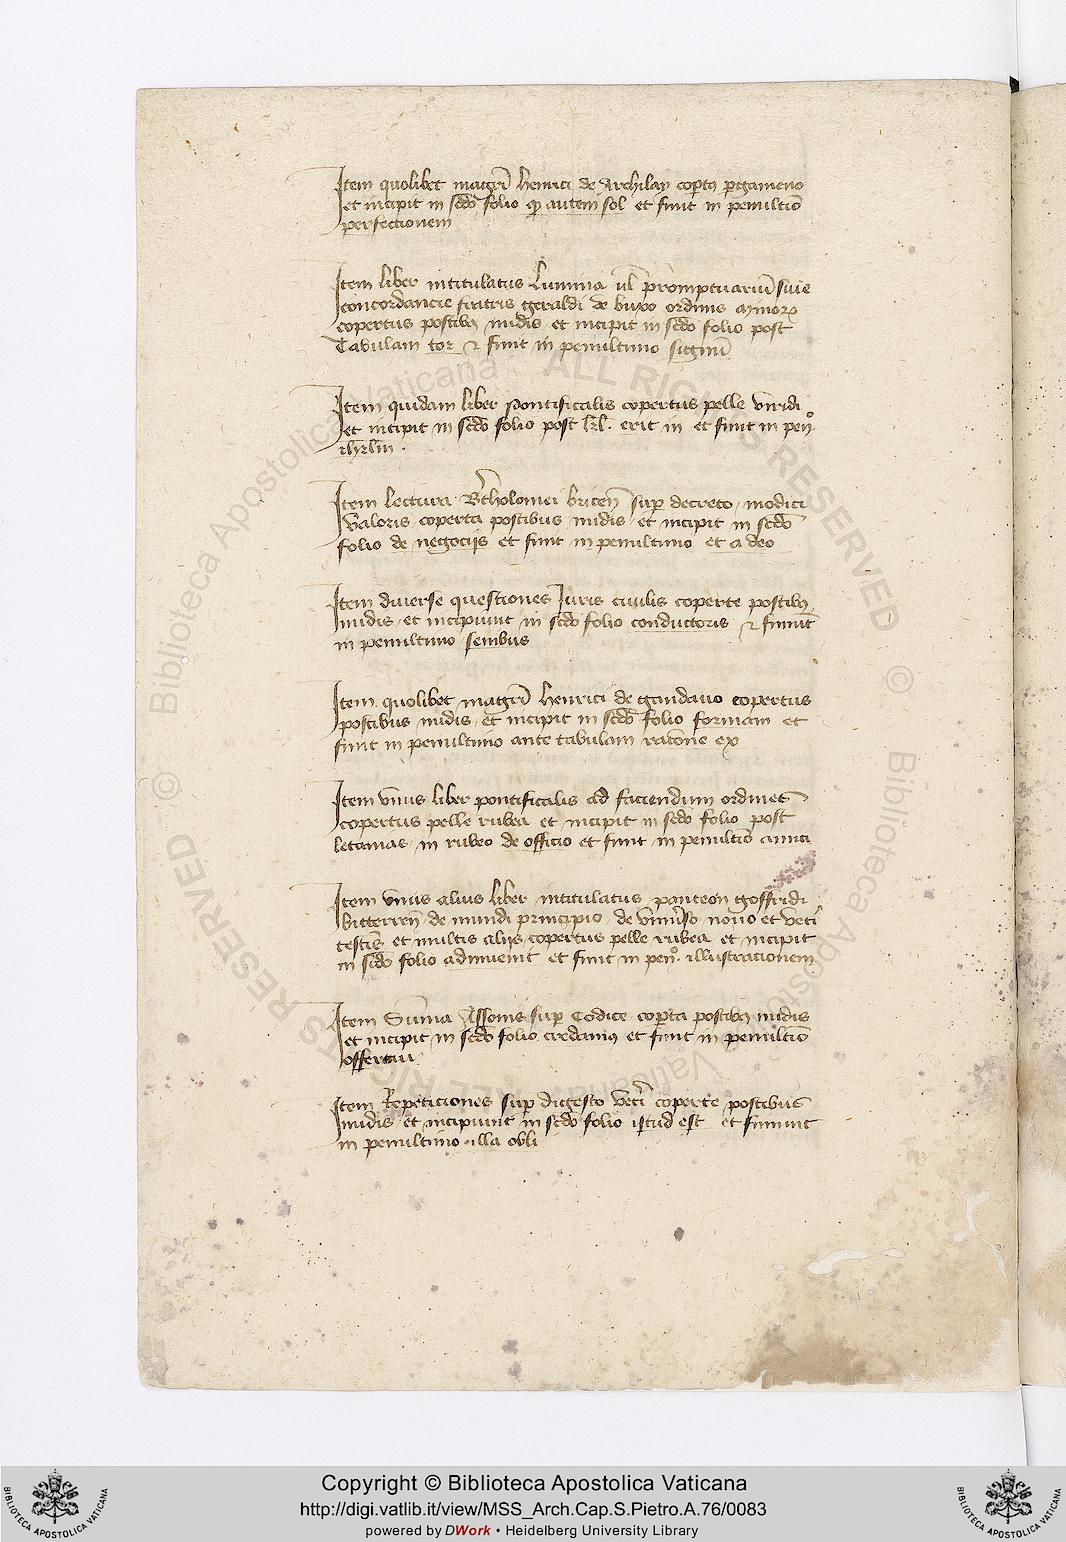 Item quolibet magrī Henrici de Archilay coptꝰ pgameno
et incipit in scdō folio qꝫ autem sol et finit in penultiō
perfectionem
Item liber intitulatus Lumina ul̄ promptuariū sive
concordancie fratris geraldi de buxo ordinis minoꝝ
copertus postibꝰ nudis et incipit in scdō folio post
Tabulam tor ⁊ finit in penultimo
Item quidam liber pontificalis copertus pelle viridi
et incipit in scdō folio post erit in et finit in pen̄º.
Item lectura Bertholomei bricen̄ sup decreto modici
valoris coperta postibus nudis et incipit in scdō
folio de negocijs et finit in penultimo et a deo
Item diverse questiones Juris civilis coperte postibꝰ
nudis et incipiunt in scdō folio conductoris ⁊ finiūt
in penultimo
Item quolibet magrī Henrici de gandavo copertus
postibus nudis et incipit in scdō folio formam et
finit in penultimo ante tabulam ratōne ex
Item unus liber pontificalis ad faciendum ordines
copertus pelle rubea et incipit in scdō folio post
letanias in rubeo de officio et finit in penultiō
Item unus alius liber intitulatus panteon goffridi
bitterren̄ de mundi principio de univso novo et veti
testis et multis alijs copertus pelle rubea et incipit
in scdō folio adinvenit et finit in pen̄º. illustracionem
Item Sum̄a Assonis sup Codice copta postibꝰ nudis
et incipit in scdō folio credamꝰ et finit in penultiō
Item Repeticiones sup digesto veti coperte postibus
nudis et incipiunt in scdō folio istud est et finiunt
in penultimo illa obli
Copyright © Biblioteca Apostolica Vaticana
http://digi.vatlib.it/view/MSS_Arch.Cap.S.Pietro.A.76/0083
powered by DWork • Heidelberg University Library